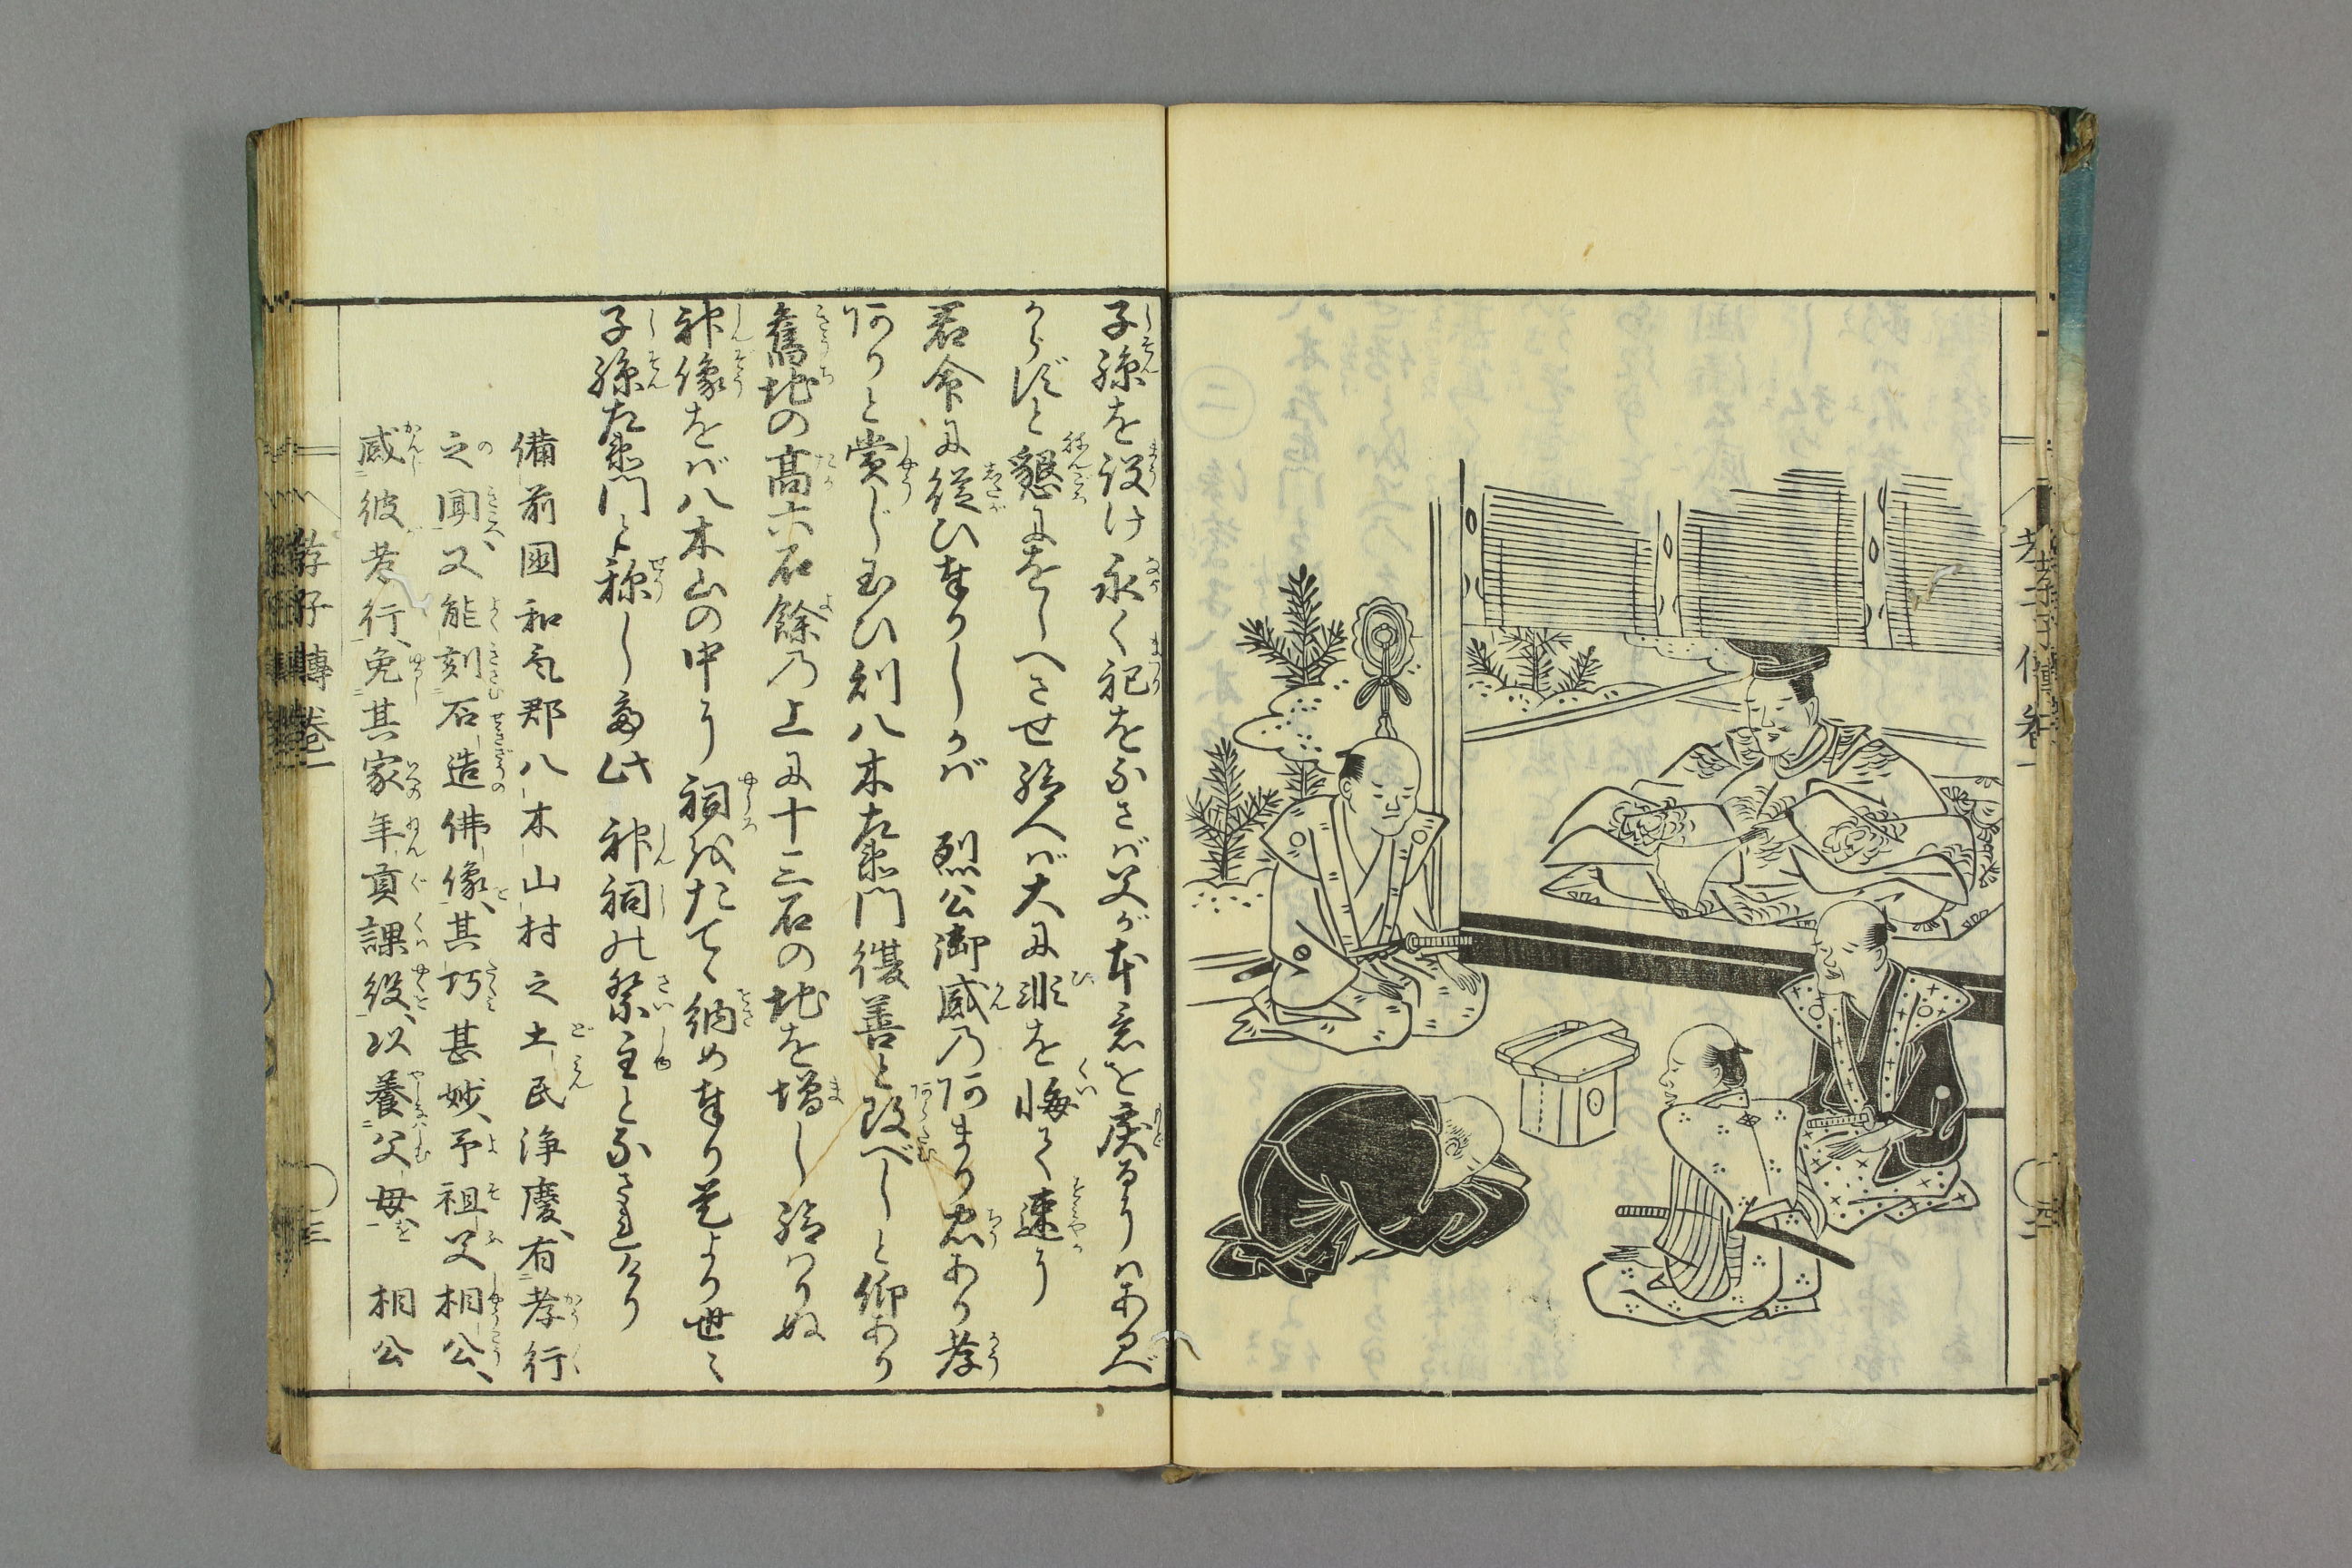 子孫を設け永く祀をなさば父が本意を戻るにはあるべ
からずと懇にをしへさせ給へば大に非を悔て速に
君命に従ひ奉りしかば 烈公御感のあまり忠あり孝
ありと賞じ玉ひ則八木左衛門復善と改べしと仰あり
舊地の高六石餘の上に十三石の地を増し給はりぬ
神像をば八木山の中に祠をたてゝ納め奉り是より世〻
子孫左衛門と称し每此神祠の祭主となされたり
備前國和氣郡八木山村之土民浄慶、有孝行
之聞、又能刻石造佛像、其巧甚妙、予祖父相公、
感彼孝行、免其家年貢課役、以養父母 相公
孝子傳卷一
三
孝子傳卷一